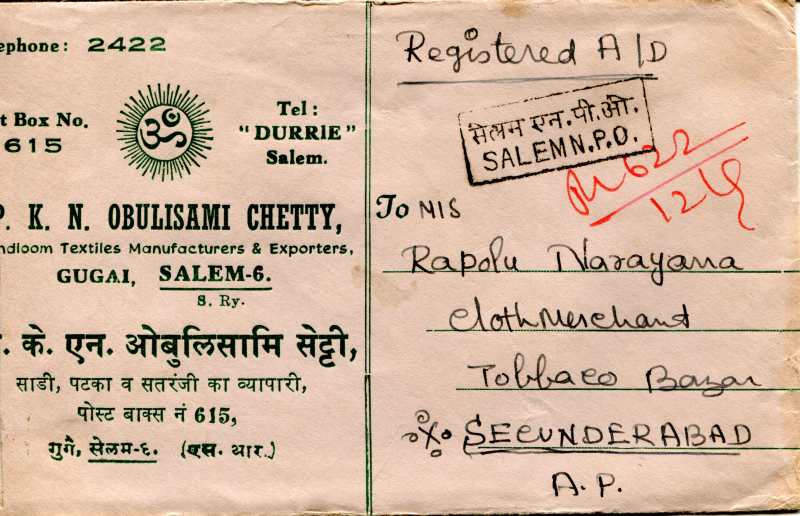 ephone: 2422
t Box No.
615
ॐ
Tel:
"DURRIE"
Salem.
P. K. N. OBULISAMI CHETTY,
ndloom Textiles Manufacturers & Exporters,
GUGAI, SALEM-6.
S. Ry.
. के. एन. ओबुलिसामि सेट्टी,
साडी, पटका व सतरंजी का व्यापारी,
पोस्ट बाक्स नं 615,
गुगै, सेलम-६. (एस. आर.)
Registered A/D
सेलम एन.पी.ओ.
SALEM N.P.O.
622
To M/S
Rapolu Narayana
Cloth Merchant
Tobbaco Bazar
SECUNDERABAD
A.P.